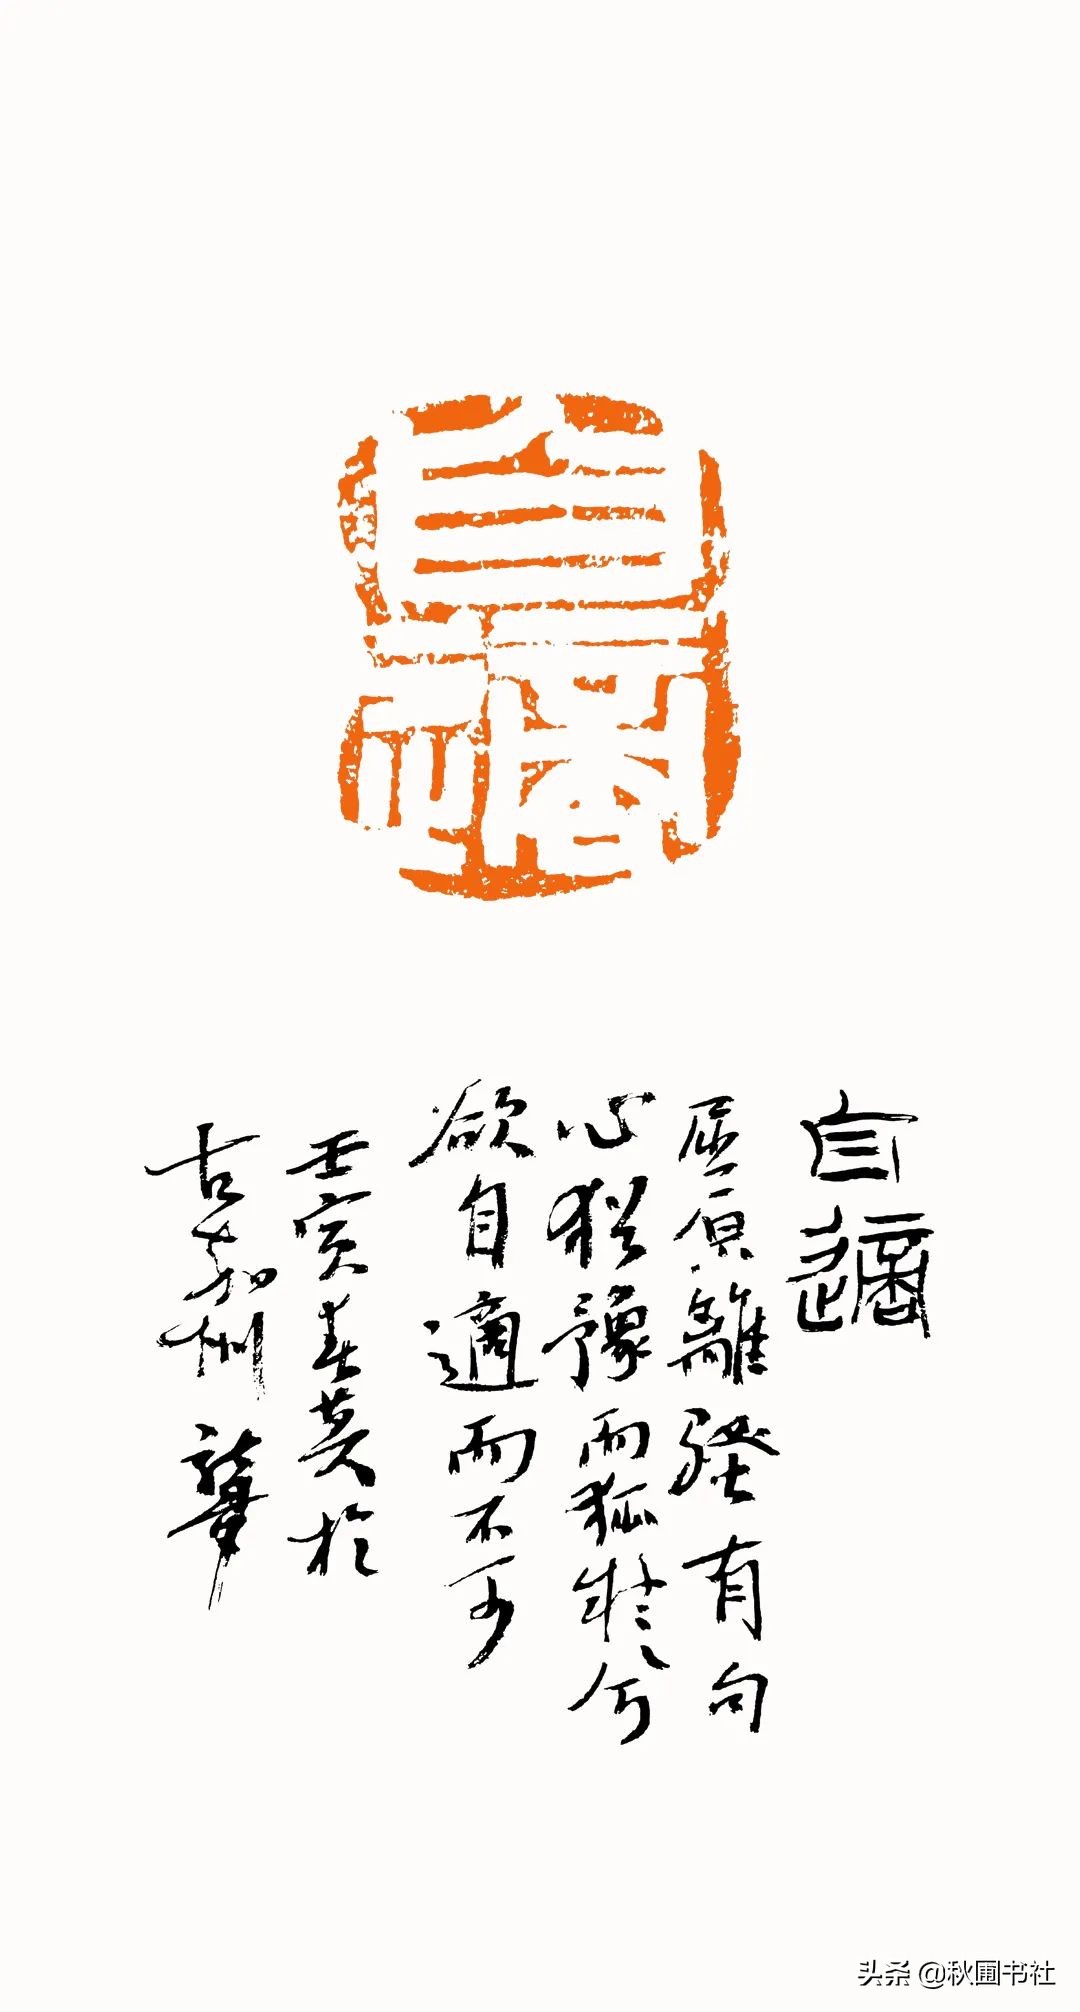 自適
自適
屈原離騷有句
心猶豫而狐疑兮
欲自適而不可
壬寅春莫於
古嘉州 龔
头条 @秋圃书社